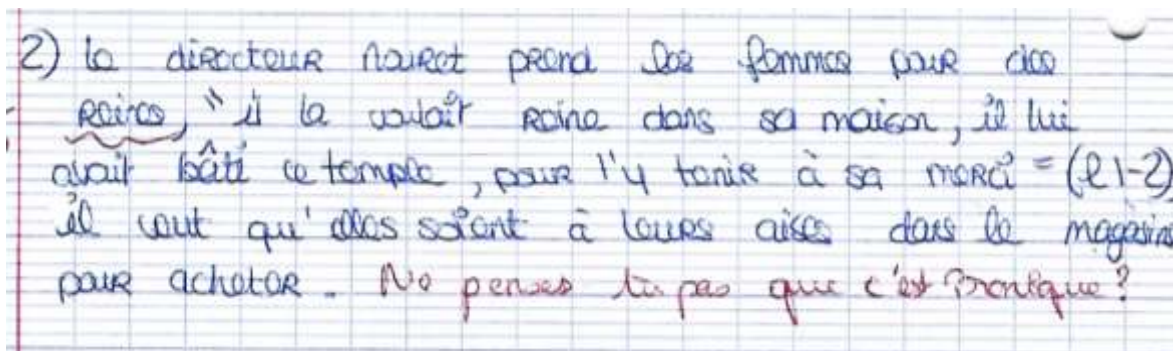 2) le directeur Mouret prend les femmes pour des
reines, " il la voulait reine dans sa maison, il lui
avait bâti ce temple, pour l'y tenir à sa merci " (l 1-2)
il veut qu'elles soient à leurs aises dans le magasin
pour acheter. Ne penses tu pas que c'est ironique ?